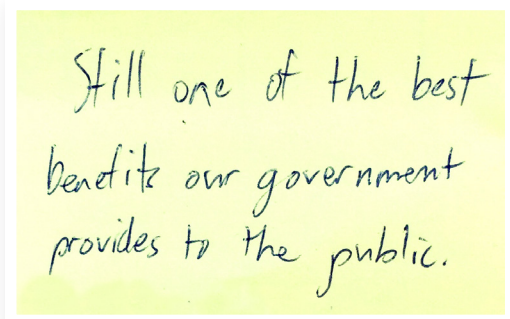 Still one of the best
benefits our government
provides to the public.